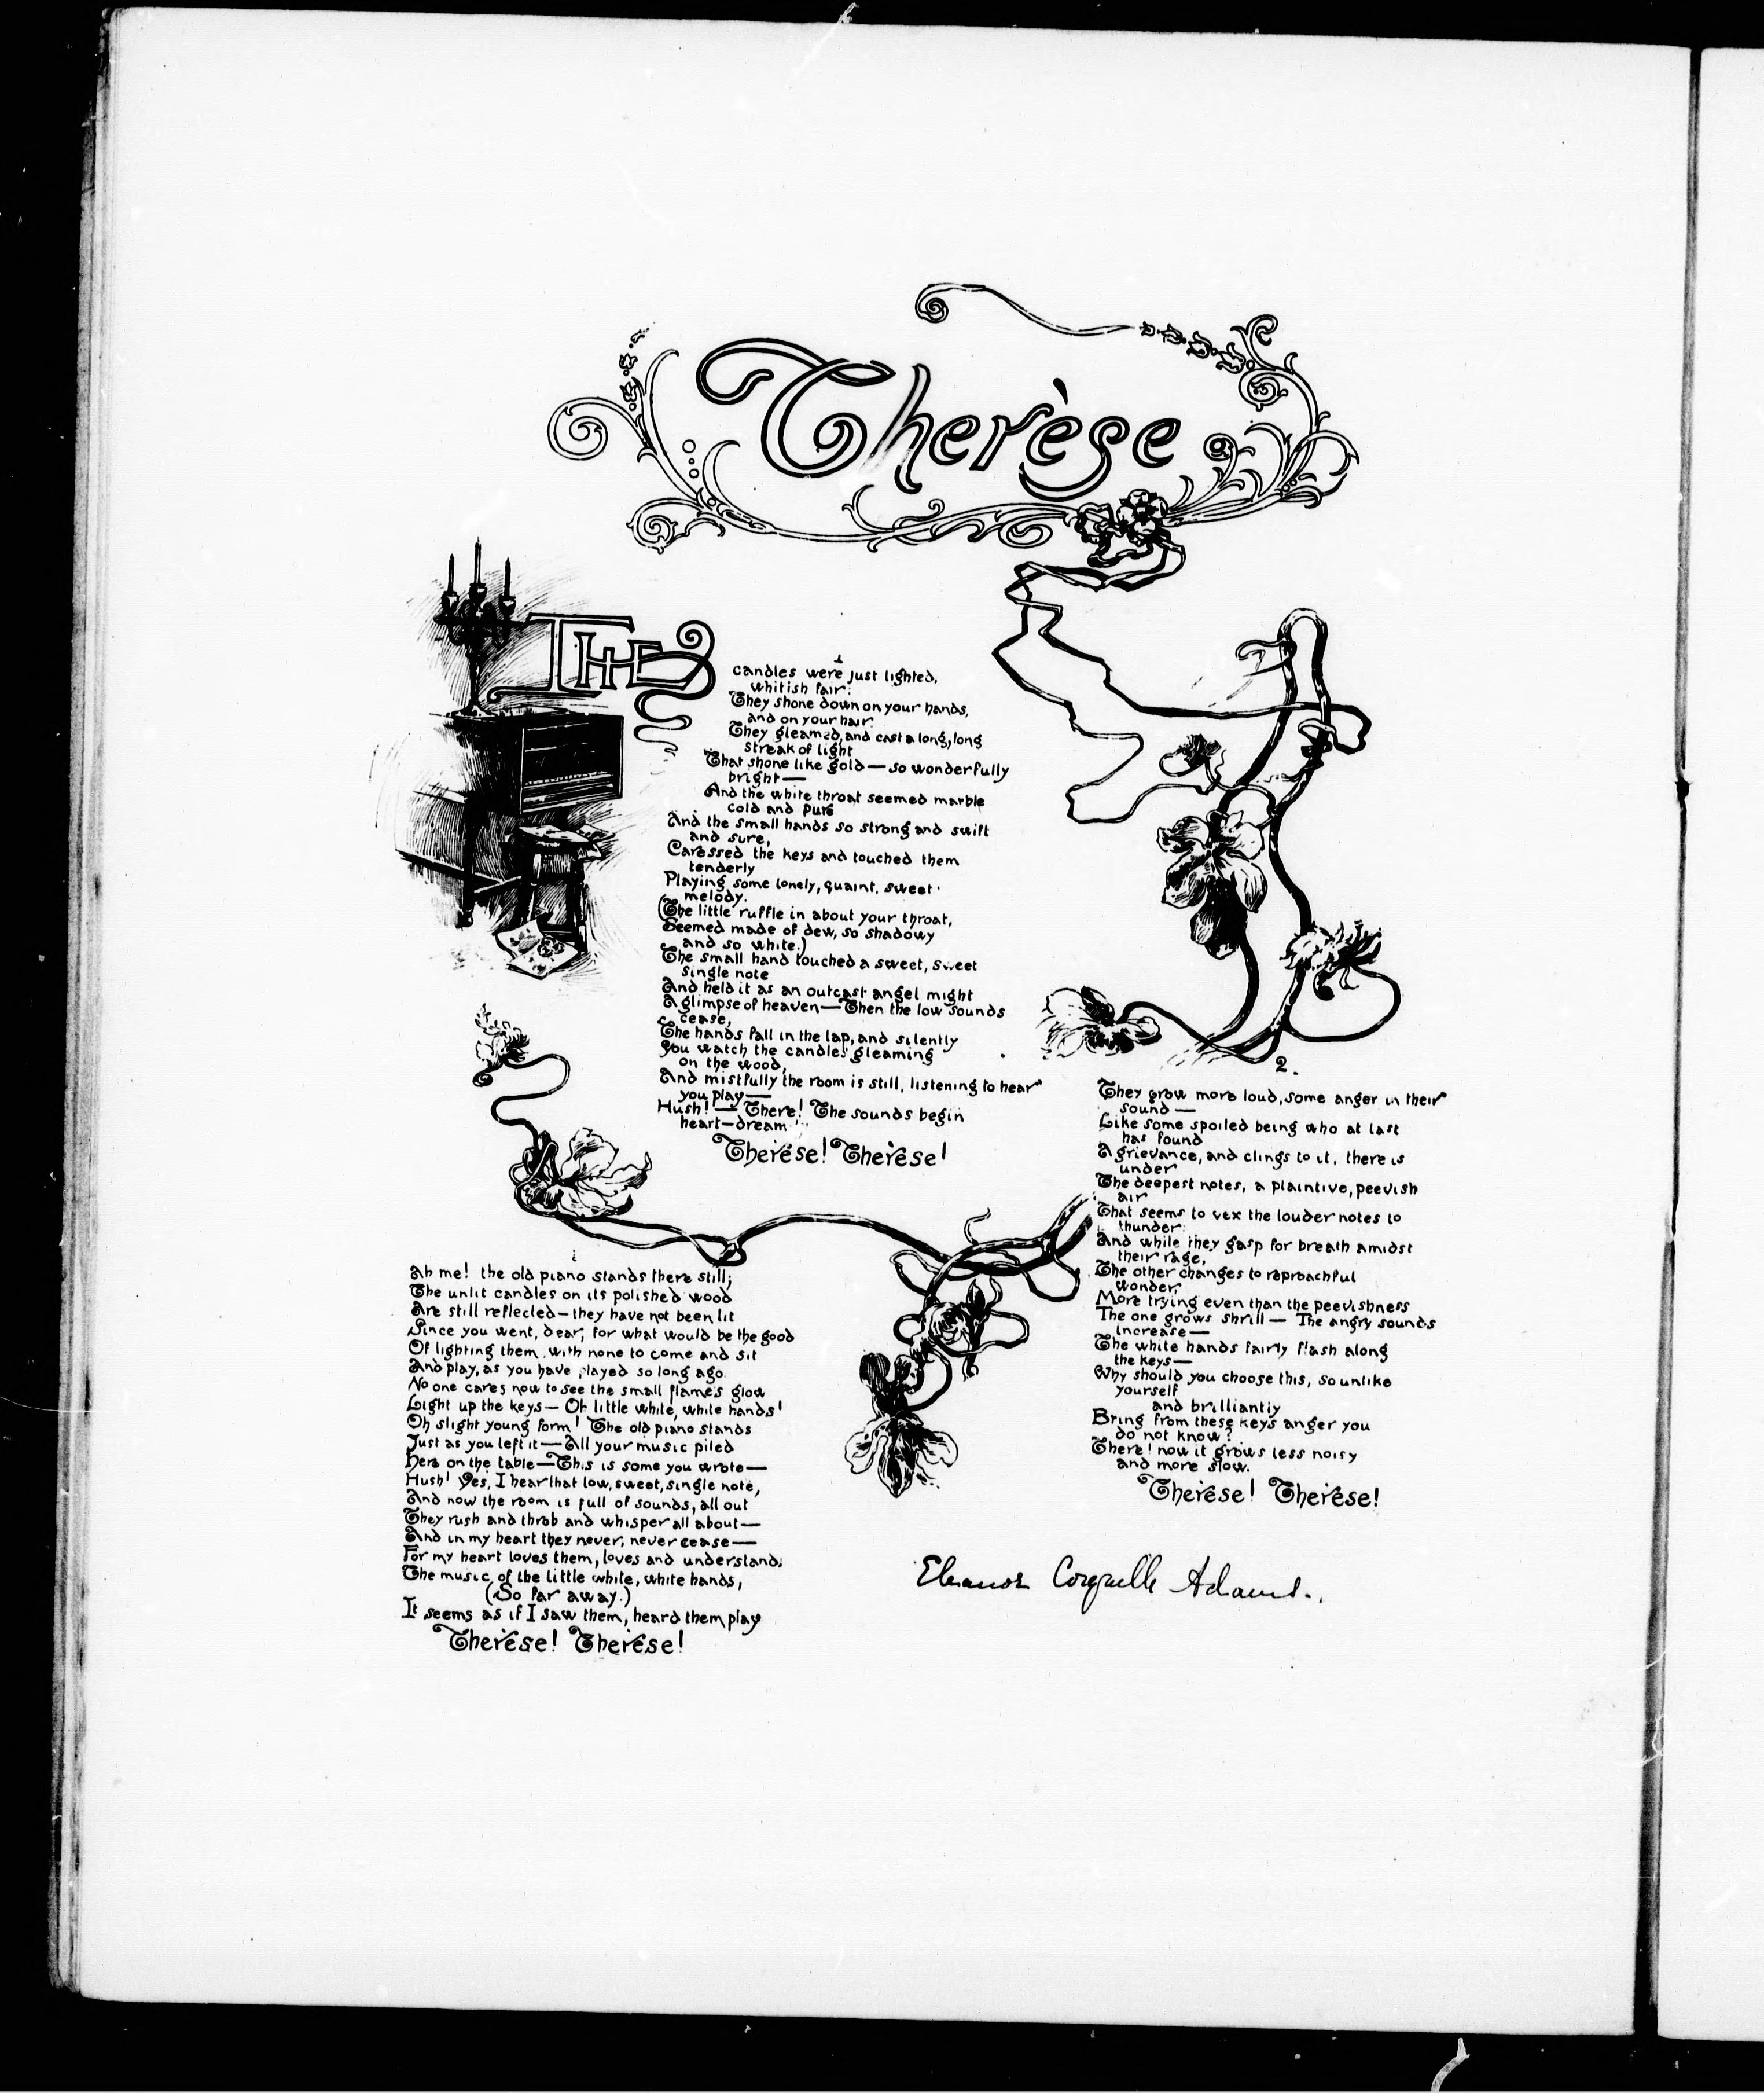 Therèse
1
THE candles were just lighted,
whitish fair:
They shone down on your hands,
and on your hair.
They gleamed, and cast a long, long
streak of light
That shone like gold — so wonderfully
bright —
And the white throat seemed marble
cold and pure
And the small hands so strong and swift
and sure,
Caressed the keys and touched them
tenderly
Playing some lonely, quaint, sweet
melody.
(The little ruffle in about your throat,
Seemed made of dew, so shadowy
and so white.)
The small hand touched a sweet, sweet
single note
And held it as an outcast angel might
A glimpse of heaven — Then the low sounds
cease,
The hands fall in the lap, and silently
You watch the candles' gleaming
on the wood,
And mistfully the room is still, listening to hear
you play —
Hush! — There! The sounds begin
heart-dream
Therèse! Therèse!
2.
They grow more loud, some anger in their
sound —
Like some spoiled being who at last
has found
A grievance, and clings to it, there is
under
The deepest notes, a plaintive, peevish
air
That seems to vex the louder notes to
thunder:
And while they gasp for breath amidst
their rage,
The other changes to reproachful
wonder,
More trying even than the peevishness
The one grows shrill — The angry sounds
increase —
The white hands fairly flash along
the keys —
Why should you choose this, so unlike
yourself
and brilliantly
Bring from these keys anger you
do not know?
There! now it grows less noisy
and more slow.
Therèse! Therèse!
Ah me! the old piano stands there still;
The unlit candles on its polished wood
Are still reflected — they have not been lit
Since you went, dear, for what would be the good
Of lighting them, with none to come and sit
And play, as you have played so long ago.
No one cares now to see the small flames glow
Light up the keys — Oh little white, white hands!
Oh slight young form! The old piano stands
Just as you left it — All your music piled
Here on the table — This is some you wrote —
Hush! Yes, I hear that low, sweet, single note,
And now the room is full of sounds, all out
They rush and throb and whisper all about —
And in my heart they never, never cease —
For my heart loves them, loves and understands
The music of the little white, white hands,
(So far away.)
It seems as if I saw them, heard them play
Therèse! Therèse!
Eleanor Adams.